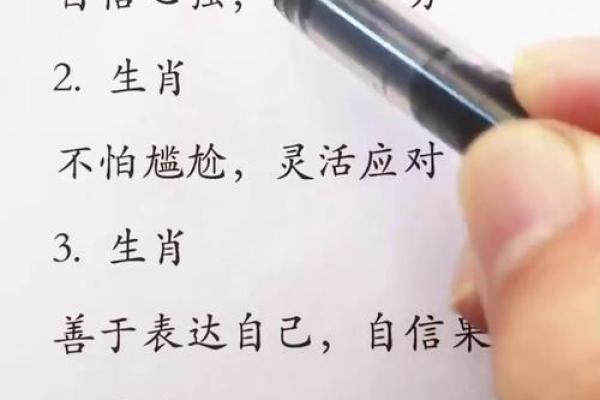 2. 生肖
不怕尴尬，灵活应对
3. 生肖
善于表达自己，自信果